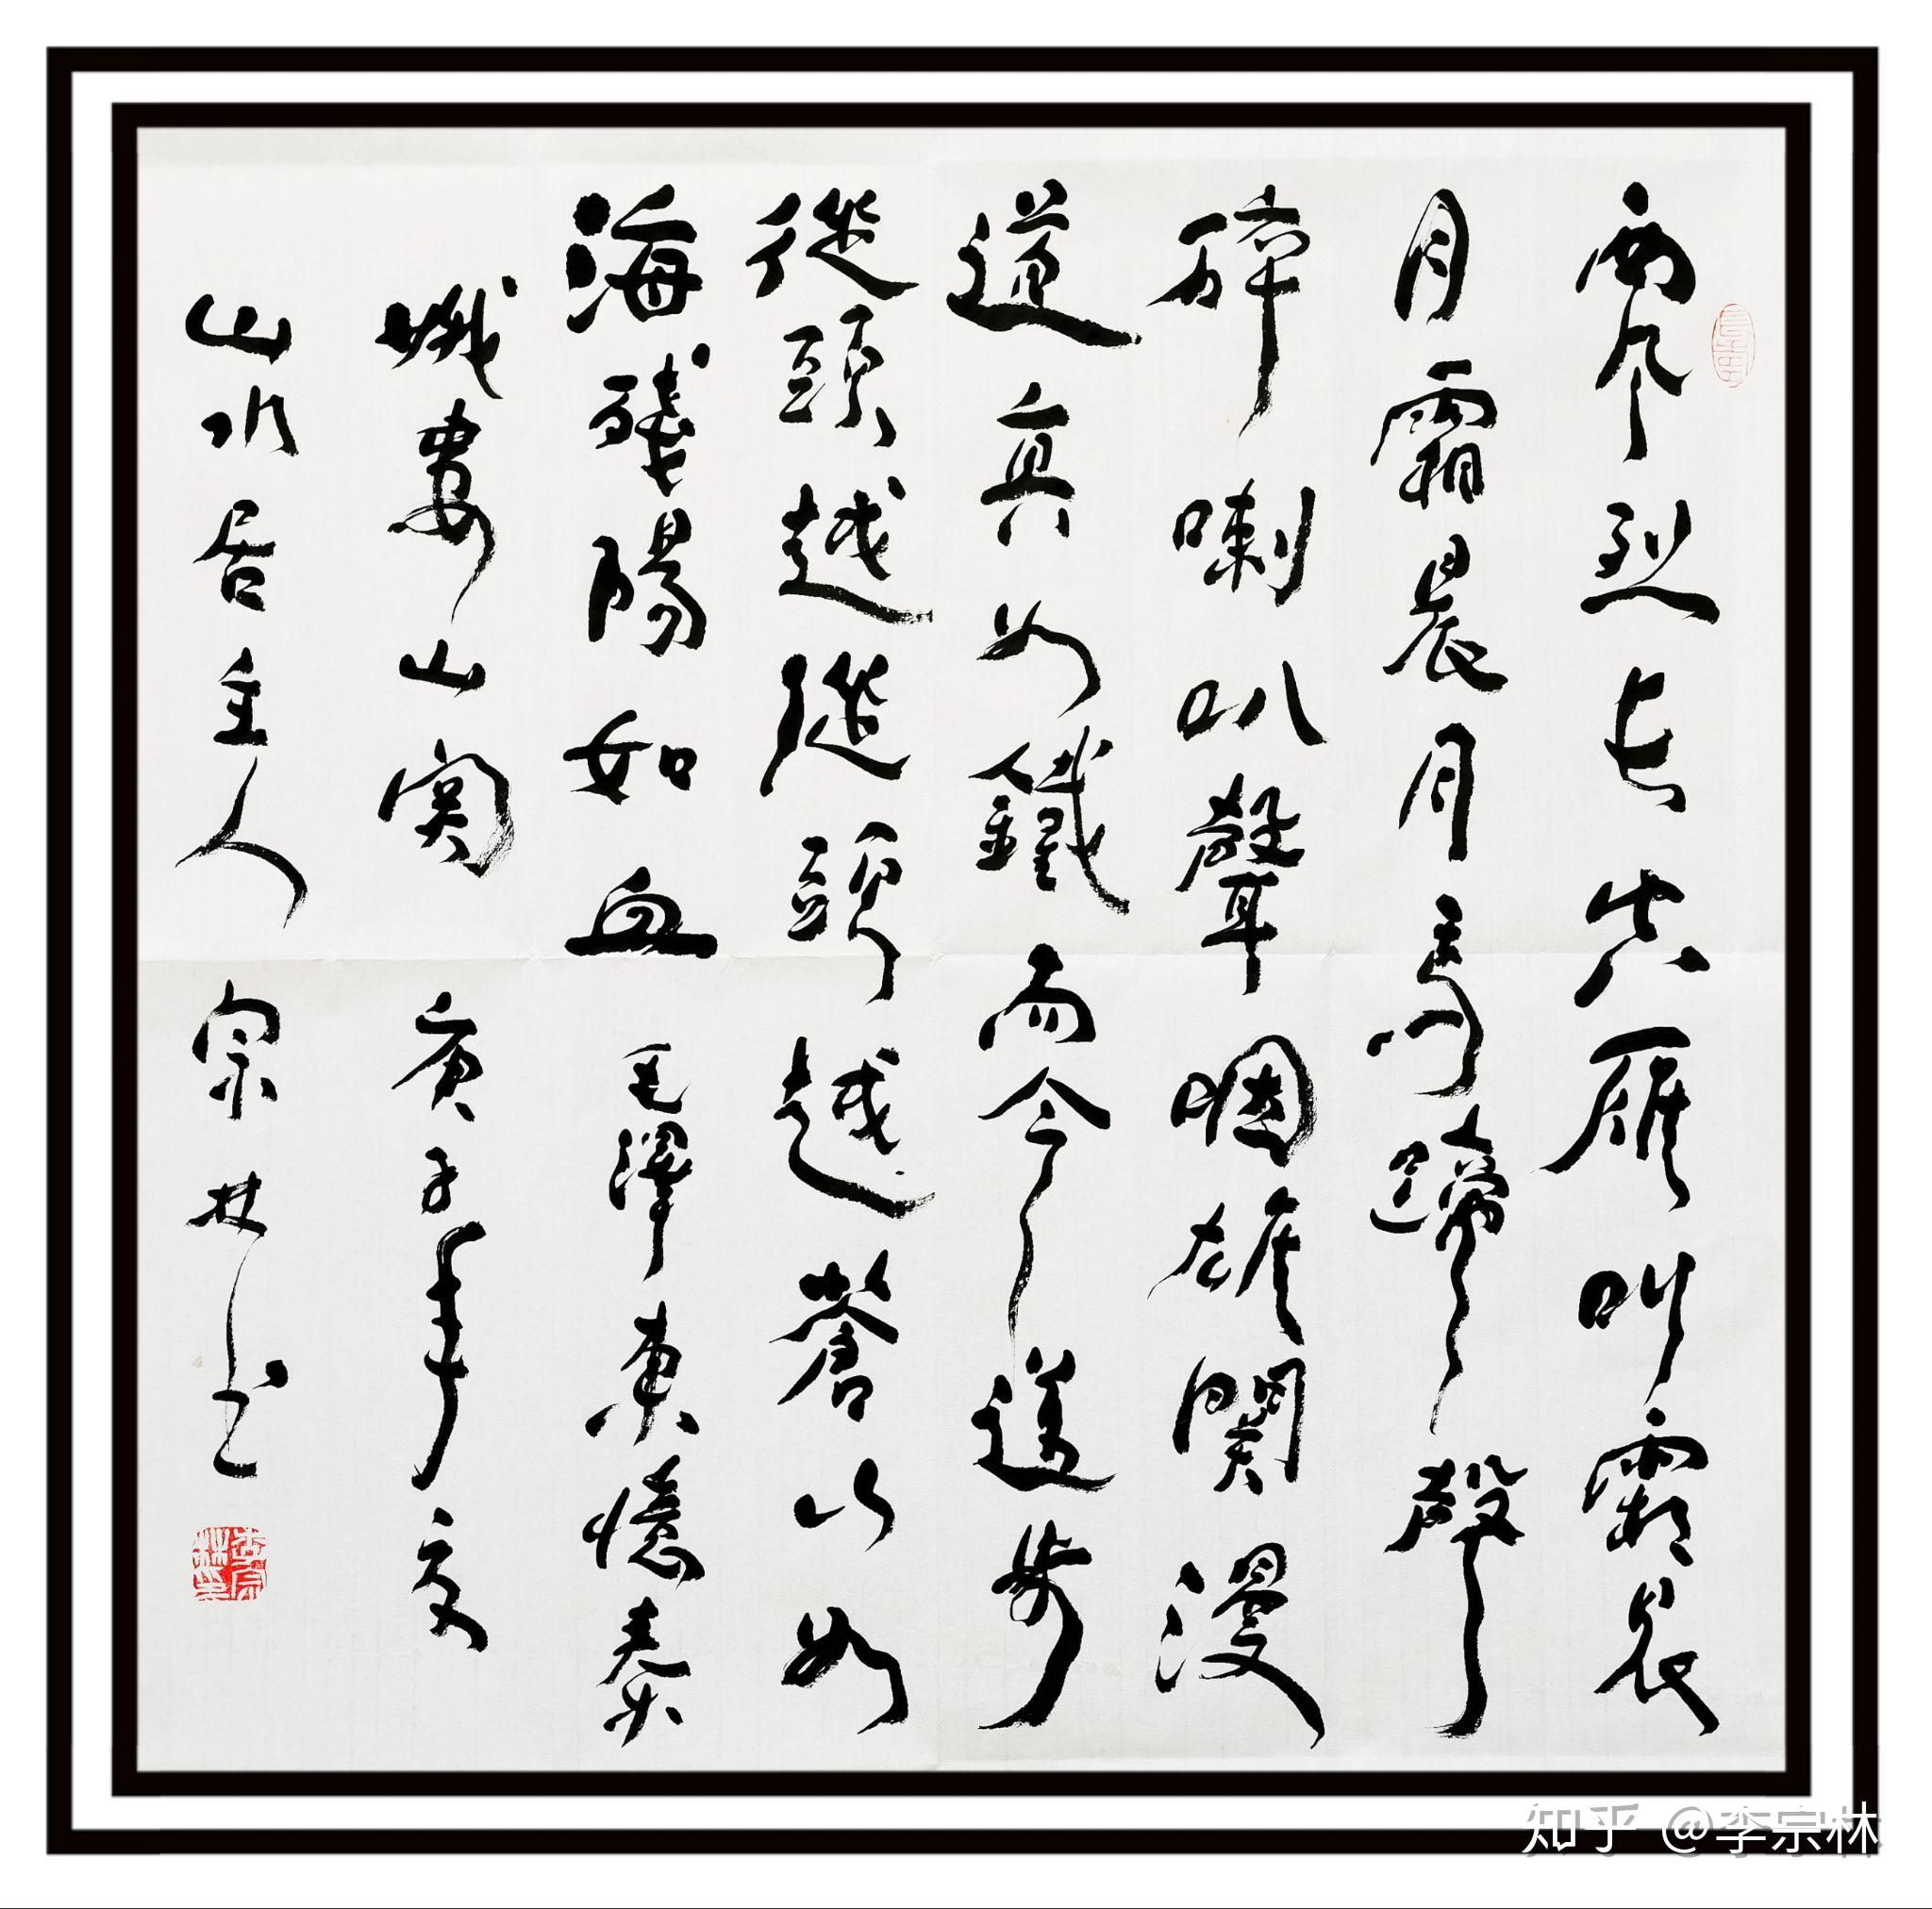 西风烈长空雁叫霜晨
月霜晨月馬蹄聲
碎喇叭聲咽雄關漫
道真如鐵而今邁步
從頭越從頭越蒼山如
海殘陽如血 毛澤東憶秦
娥婁山關 庚子年夏
山水居主人 宗林书
李宗林印
知乎 @李宗林